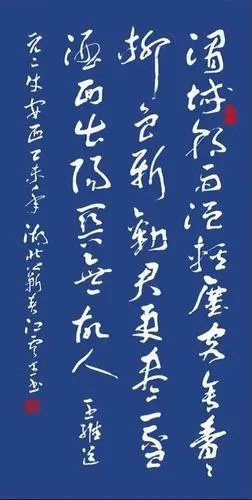 渭城朝雨浥輕塵客舍青々
柳色新勸君更盡一杯
酒西出陽關無故人 王維送
元二使安西乙未年湖北蘄春江書